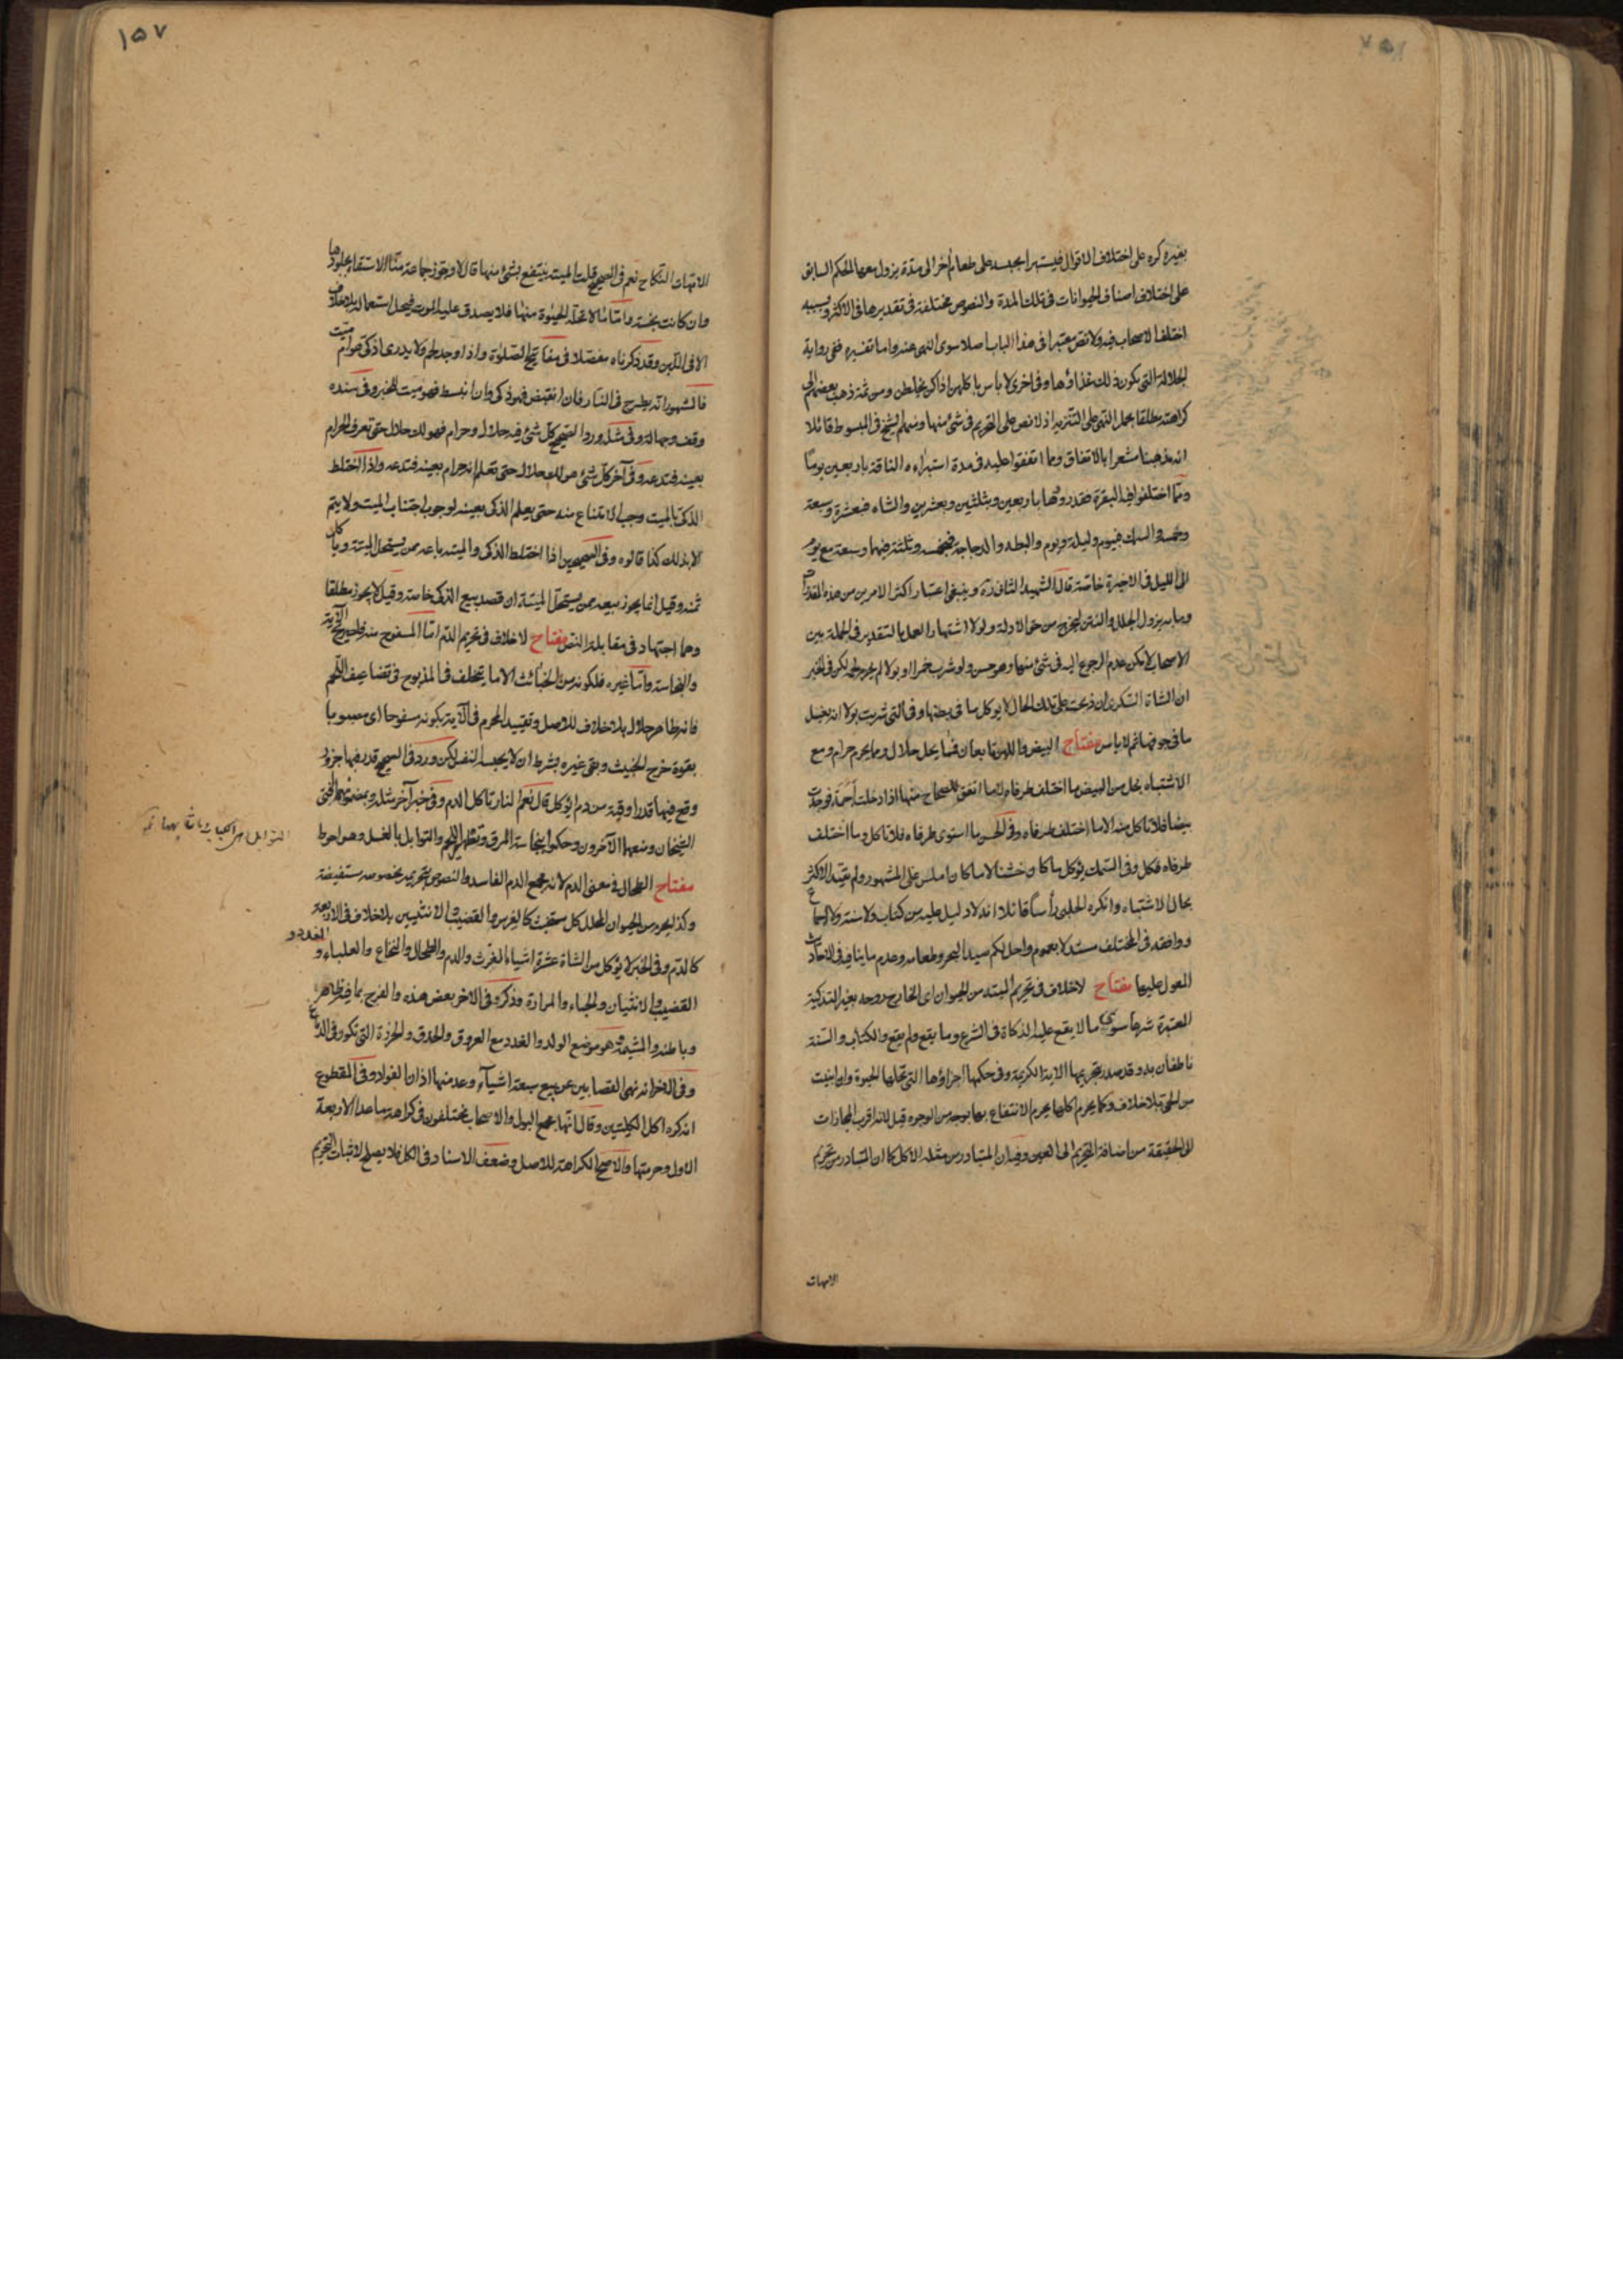 بغيره كره على اختلاف الاقوال فيستبرا بحبسه على طعام آخر الى مدة يزول معها الحكم السابق
على اختلاف اصناف الحيوانات فى تلك المدة والنصوص مختلفة فى تقديرها فى الاكثر وبسببه
اختلف الاصحاب فيه ولا نص معتبرا فى هذا الباب اصلا سوى النهى عنه واما تفسيره ففى رواية
الجلالة التى يكون ذلك غذاؤها وفى اخرى لا باس باكلهن اذا كن يخلطن ومن ثمة ذهب بعضهم الى
كراهته مطلقا بحمل النهى على التنزيه اذ لا نص على التحريم فى شئ منها ومنهم الشيخ فى المبسوط قائلا
انه مذهبنا مشعرا بالاتفاق ومما اتفقوا عليه فى مدة استبراءه الناقة باربعين يوما
ومما اختلفوا فيه البقرة فقدروها باربعين وبثلثين وبعشرين والشاه فبعشرة وسبعة
وخمسة والسمك فبيوم وليلة وبيوم والبطه والدجاجة فبخمسة وثلثة فيهما وسبعة مع يوم
الى الليل فى الاخيرة خاصة قال الشهيد الثانى ره وينبغى اعتبار اكثر الامرين من هذه المقدرات
وما به يزول الجلل والنتن ليخرج من حق الادلة ولولا اشتهار العمل بالتقدير فى الجملة بين
الاصحاب لامكن عدم الرجوع اليه فى شئ منها وهو حسن ولو شرب خمرا او بولا لم يحرم لحمه لكن فى الخبر
ان الشاة السكرى ان ذبحت على تلك الحال لا يوكل ما فى بطنها وفى التى شربت بولا انه يغسل
ما فى جوفها ثم لا باس مفتاح البيض واللبن تابعان فما يحل حلال وما يحرم حرام ومع
الاشتباه يحل من البيض ما اختلف طرفاه لا ما اتفق للصحاح منها اذا دخلت اجمة فوجدت
بيضا فلا تاكل منه الا ما اختلف طرفاه وفى الحسن ما استوى طرفاه فلا تاكل وما اختلف
طرفاه فكل وفى السمك يؤكل ما كان خشنا لا ما كان املس على المشهور ولم يقيد الاكثر
بحال الاشتباه وانكره الحلبى رأسا قائلا انه لا دليل عليه من كتاب ولا سنة ولا اجماع
ووافقه فى المختلف مستدلا بعموم واحل لكم صيد البحر وطعامه وعدم ما ينافيه فى الاحاديث
المعول عليها مفتاح لا خلاف فى تحريم الميتة من الحيوان اى الخارج روحه بغير التذكية
المعتبرة شرعا سوى ما لا يقع عليه الذكاة فى الشرع وما يقع ولم يقع والكتاب والسنة
ناطقان به وقد صدر بتحريمها الاية الكريمة وفى حكمها اجزاؤها التى تحلها الحيوة وان ابينت
من الحى بلا خلاف وكما يحرم اكلها يحرم الانتفاع بها بوجه من الوجوه قيل لانه اقرب المجازات
الى الحقيقة من اضافة التحريم الى العين وفيه ان المتبادر من مثله الاكل كما ان المتبادر من تحريم
الامهات
١٥٧
الامهات النكاح نعم فى الصحيح قلت الميتة ينتفع بشئ منها قال لا وجوز جماعة منا الاستقاء بجلودها
وان كانت نجسة واما ما لا تحله الحيوة منها فلا يصدق عليه الموت فيحل استعماله بلا خلاف
الا فى اللبن وقد ذكرناه مفصلا فى مفاتيح الصلوة واذا وجد لحم ولا يدرى اذكى هو ام ميت
فالمشهور انه يطرح فى النار فان انقبض فهو ذكى وان انبسط فهو ميت للخبر وفى سنده
وقف وجهالة وفى مثله ورد الصحيح كل شئ فيه حلال وحرام فهو لك حلال حتى تعرف الحرام
بعينه فتدعه وفى آخر كل شئ هو لك حلال حتى تعلم انه حرام بعينه فتدعه واذا اختلط
الذكى بالميت وجب الامتناع منه حتى يعلم الذكى بعينه لوجوب اجتناب الميت ولا يتم
الا بذلك كذا قالوه وفى الصحيحين اذا اختلط الذكى والميته باعه ممن يستحل الميتة وياكل
ثمنه وقيل انما يجوز بيعه ممن يستحل الميتة ان قصد بيع الذكى خاصة وقيل لا يجوز مطلقا
وهما اجتهاد فى مقابلة النص مفتاح لا خلاف فى تحريم الدم اما المسفوح منه فلصريح الآية
والنجاسة واما غيره فلكونه من الخبائث الا ما يتخلف فى المذبوح فى تضاعيف اللحم
فانه طاهر حلال بلا خلاف للاصل وتقييد المحرم فى الآية بكونه مسفوحا اى مصبوبا
بقوة خرج الخبيث وبقى غيره بشرط ان لا يجذبه النفس لكن ورد فى الصحيح قدر فيها جزور
وقع فيها قدر اوقية من دم ايؤكل قال نعم النار تاكل الدم وفى خبر آخر مثله وبمضمونهما افتى
الشيخان ومنعهما الآخرون وحكموا بنجاسة المرق وتطهير اللحم والتوابل بالغسل وهو احوط
مفتاح الطحال فى معنى الدم لانه مجمع الدم الفاسد والنصوص بتحريمه بخصوصه مستفيضة
وكذا يحرم من الحيوان المحلل كل مستخبث كالفرث والقضيب والانثيين بلا خلاف فى الاربعة
كالدم وفى الخبر لا يؤكل من الشاة عشرة اشياء الفرث والدم والطحال والنخاع والعلباء والغدد و
القضيب والانثيان والحياء والمرارة وذكر فى الاخر بعض هذه والفرج بما فيه ظاهره
وباطنه والمشيمة وهو موضع الولد والغدد مع العروق والحدق والخرزة التى تكون فى الدماغ
وفى اخر انه نهى القصابين عن بيع سبعة اشياء وعد منها اذان الفؤاد وفى المقطوع
انه كره اكل الكليتين وقال انهما مجمع البول والاصحاب مختلفون فى كراهة ما عدا الاربعة
الاول وحرمتها والاصح الكراهة للاصل وضعف الاسناد فى الكل فلا يصلح لاثبات التحريم